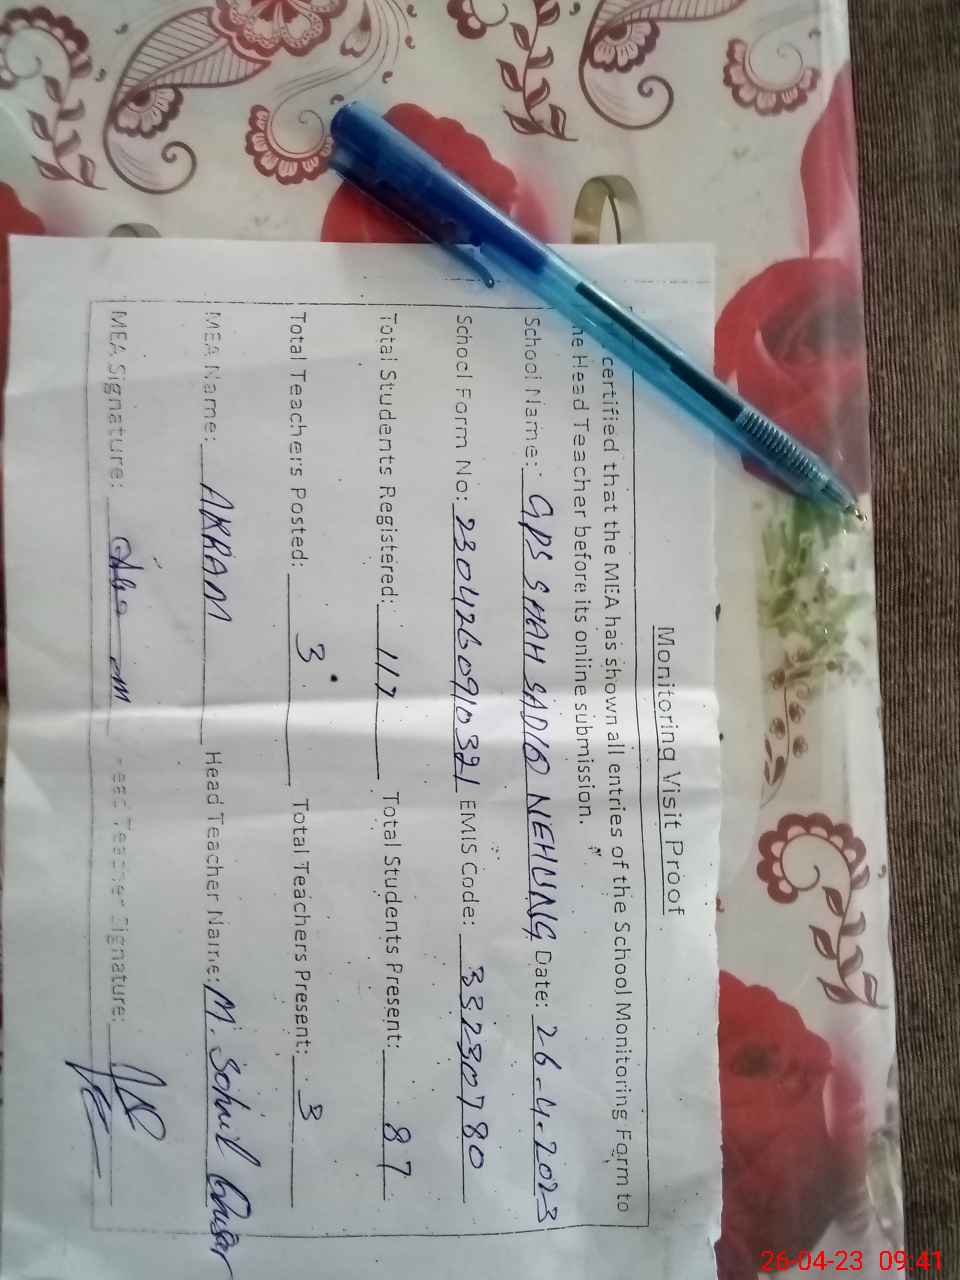 Monitoring Visit Proof
certified that the MEA has shown all entries of the School Monitoring Form to
Head Teacher before its online submission.
School Name: GPS SHAH SADIQ NEHUNG Date: 26-4-2023
School Form No: 2304260910321 EMIS Code: 33230780
Total Students Registered: 117 Total Students Present: 87
Total Teachers Posted: 3 Total Teachers Present: 3
MEA Name: AKRAM Head Teacher Name: M. Sohail
MEA Signature: Head Teacher Signature:
26-04-23 09:41